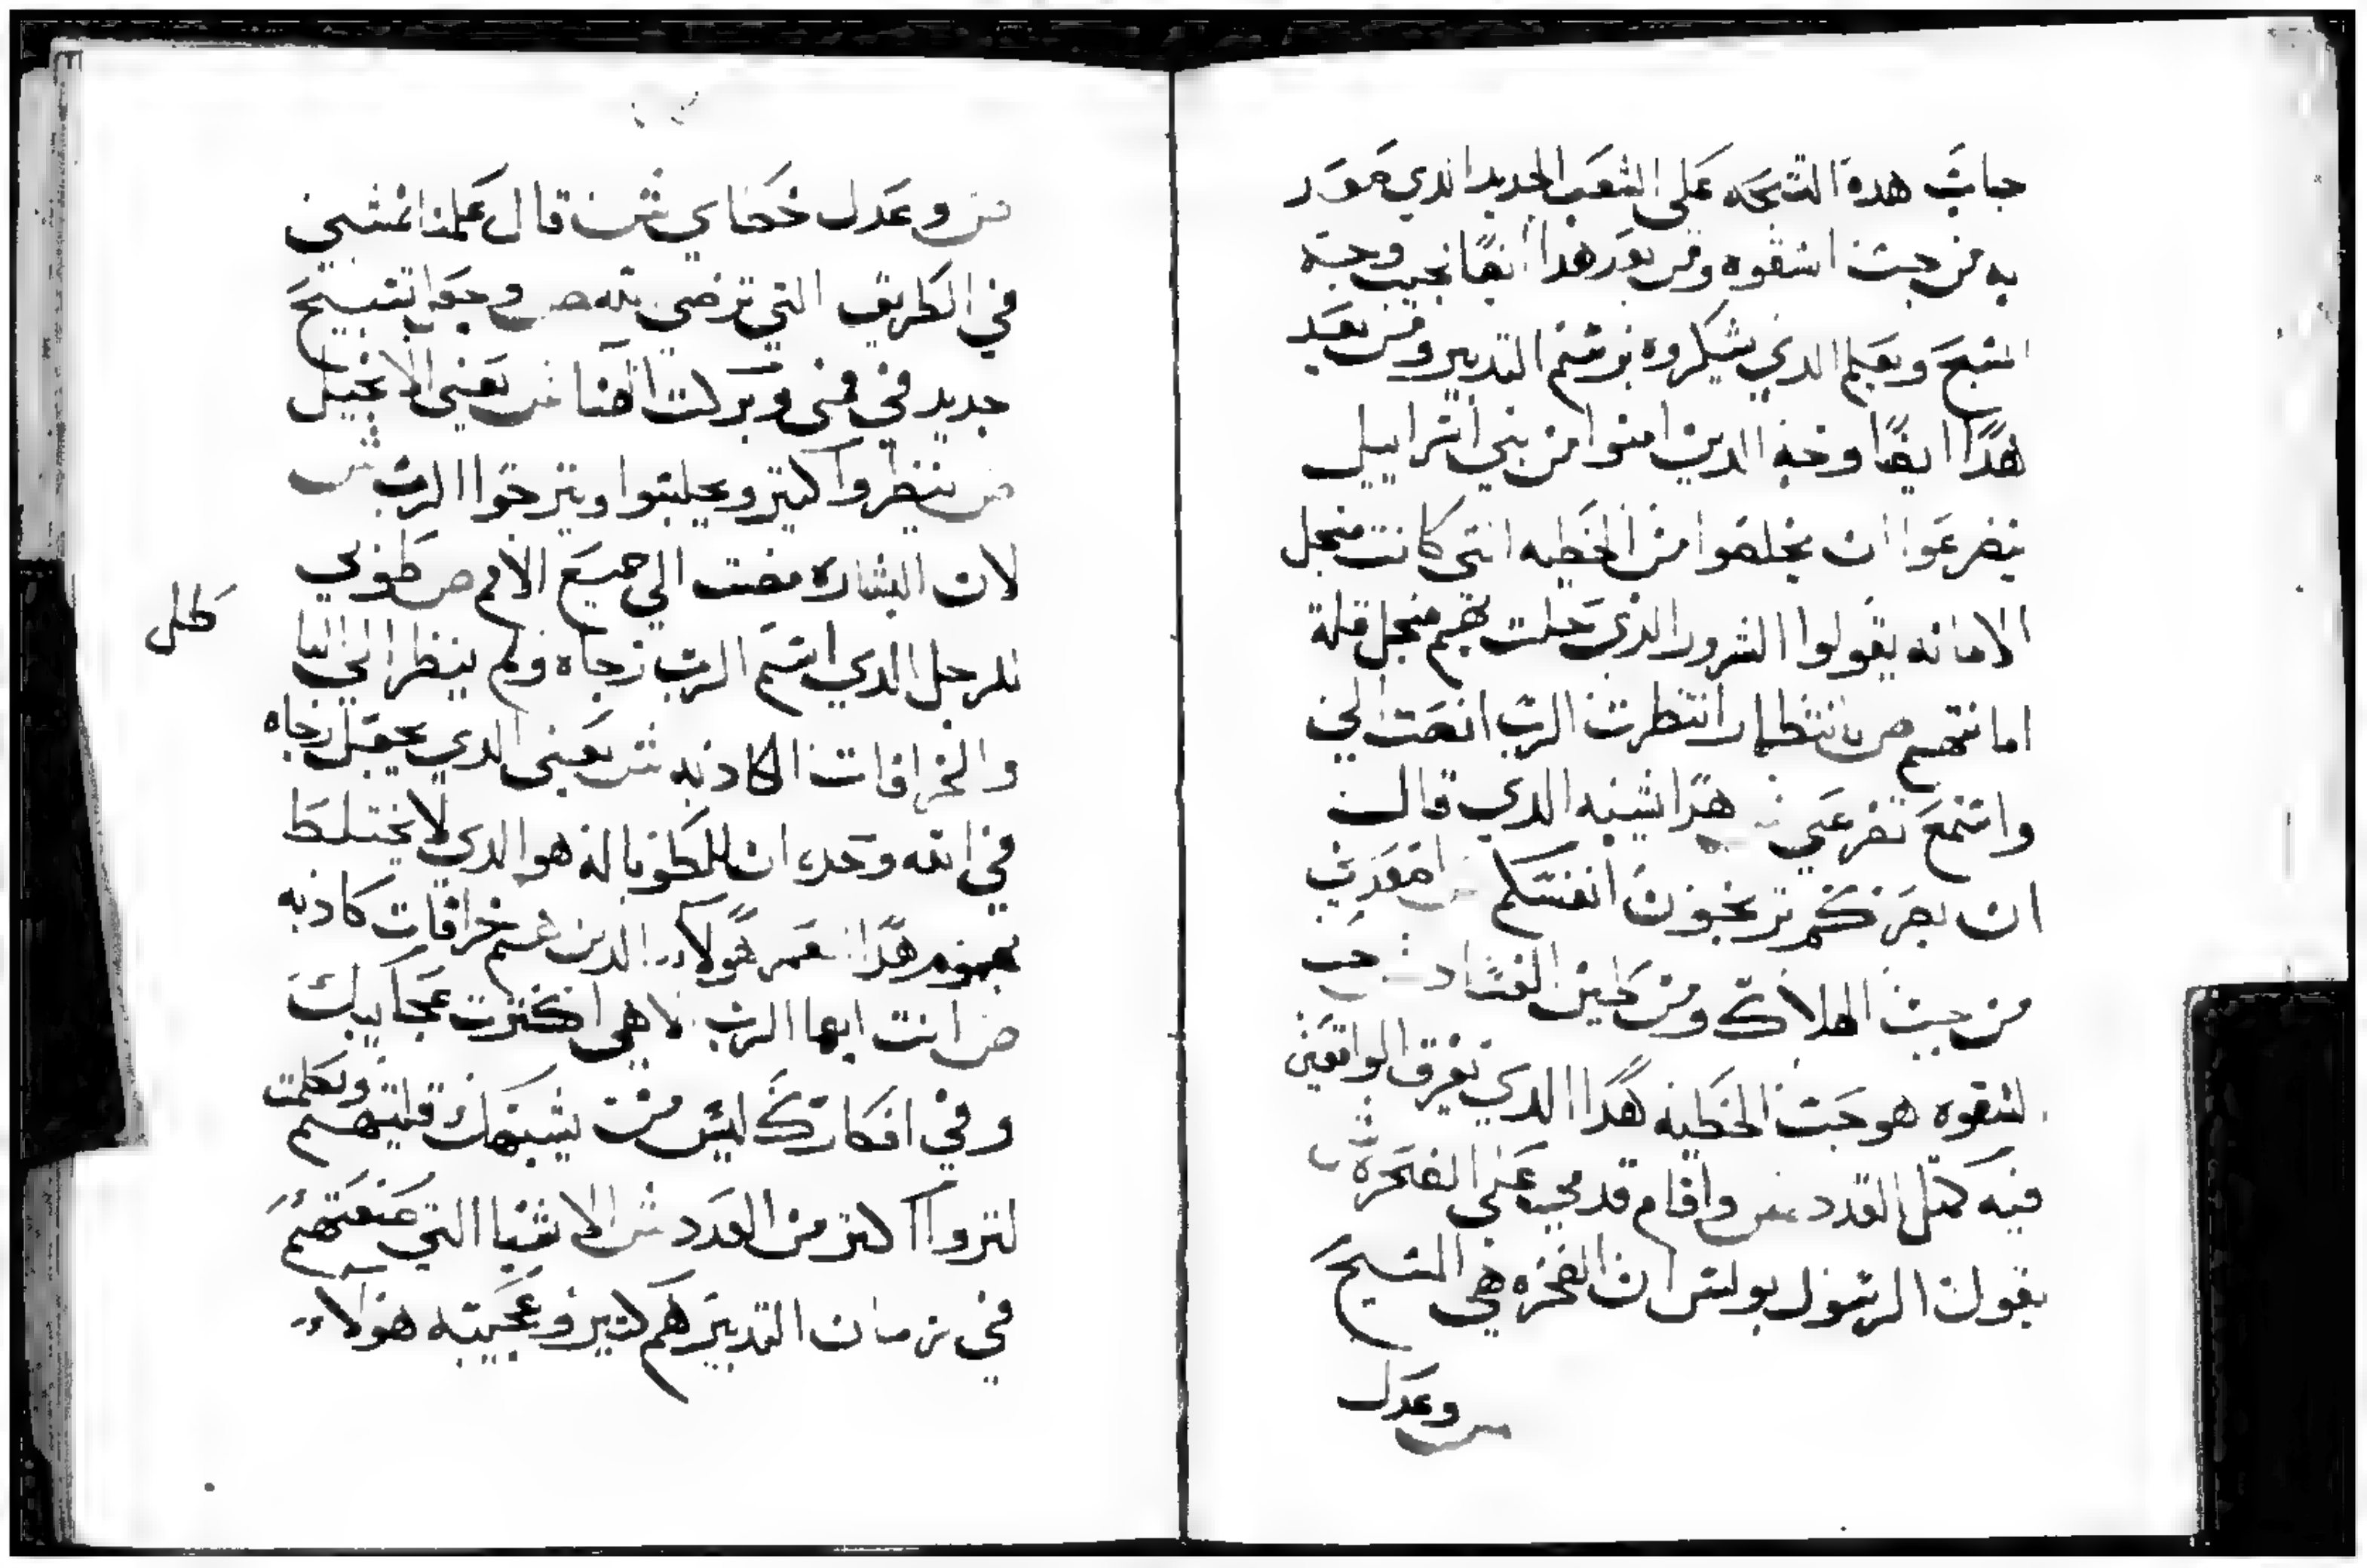 جات هده التسبحه على الشعب الجديد الدي صور
به من جب الشقوه ومن بعد هدا ايضا يجيب وجه
المسيح ويعلم الدي يشكروه برسم التدبير ومن بعد
هدا ايضا وجه الدين امنوا من بني اسراييل
يتضرعوا ان يخلصوا من الخطيه التي كانت منجل
الامانه يقولوا الشرور الدي حلت بهم منجل قلة
امانتهم ص بانتظار انتظرت الرب انصت الي
واستمع تضرعي هدا يشبه الدي قال
ان بصبركم تربحون انفسكم اصعدني
من جب الهلاك ومن طين الفساد جب
الشقوه هو جب الخطيه هدا الدي يغرق الواقعين
فيه كمثل القدد ص واقام قدمي على الصخره ش
يقول الرسول بولس ان الصخره هي المسيح
ص وعدل
ص وعدل خطاي ش قال علمنا نمشي
في الطريق التي ترضي لله ص وجعل تسبيح
جديد في فمي وبركت الاهنا ش يعني الانجيل
ص ينظروا كتير ويخافوا ويترجوا الرب ش
لان البشاره مضت الي جميع الامم ص طوبي
للرجل الدي اسم الرب رجاه ولم ينظر الي البا
طل
والخرافات الكادبه ش يعني الدي يجعل رجاه
في الله وحده ان الطوبا له هو الدي لا يختلط
هدا هولاء الدين هم خرافات كادبه
ص انت ايها الرب الاهي اكترت عجايبك
وفي افكارك ليس من يشبهك قلتهم وتكلمت
كتروا اكتر من العدد ش الاشيا التي صنعتهم
في زمان التدبير هم كتير وعجيبه هولاء